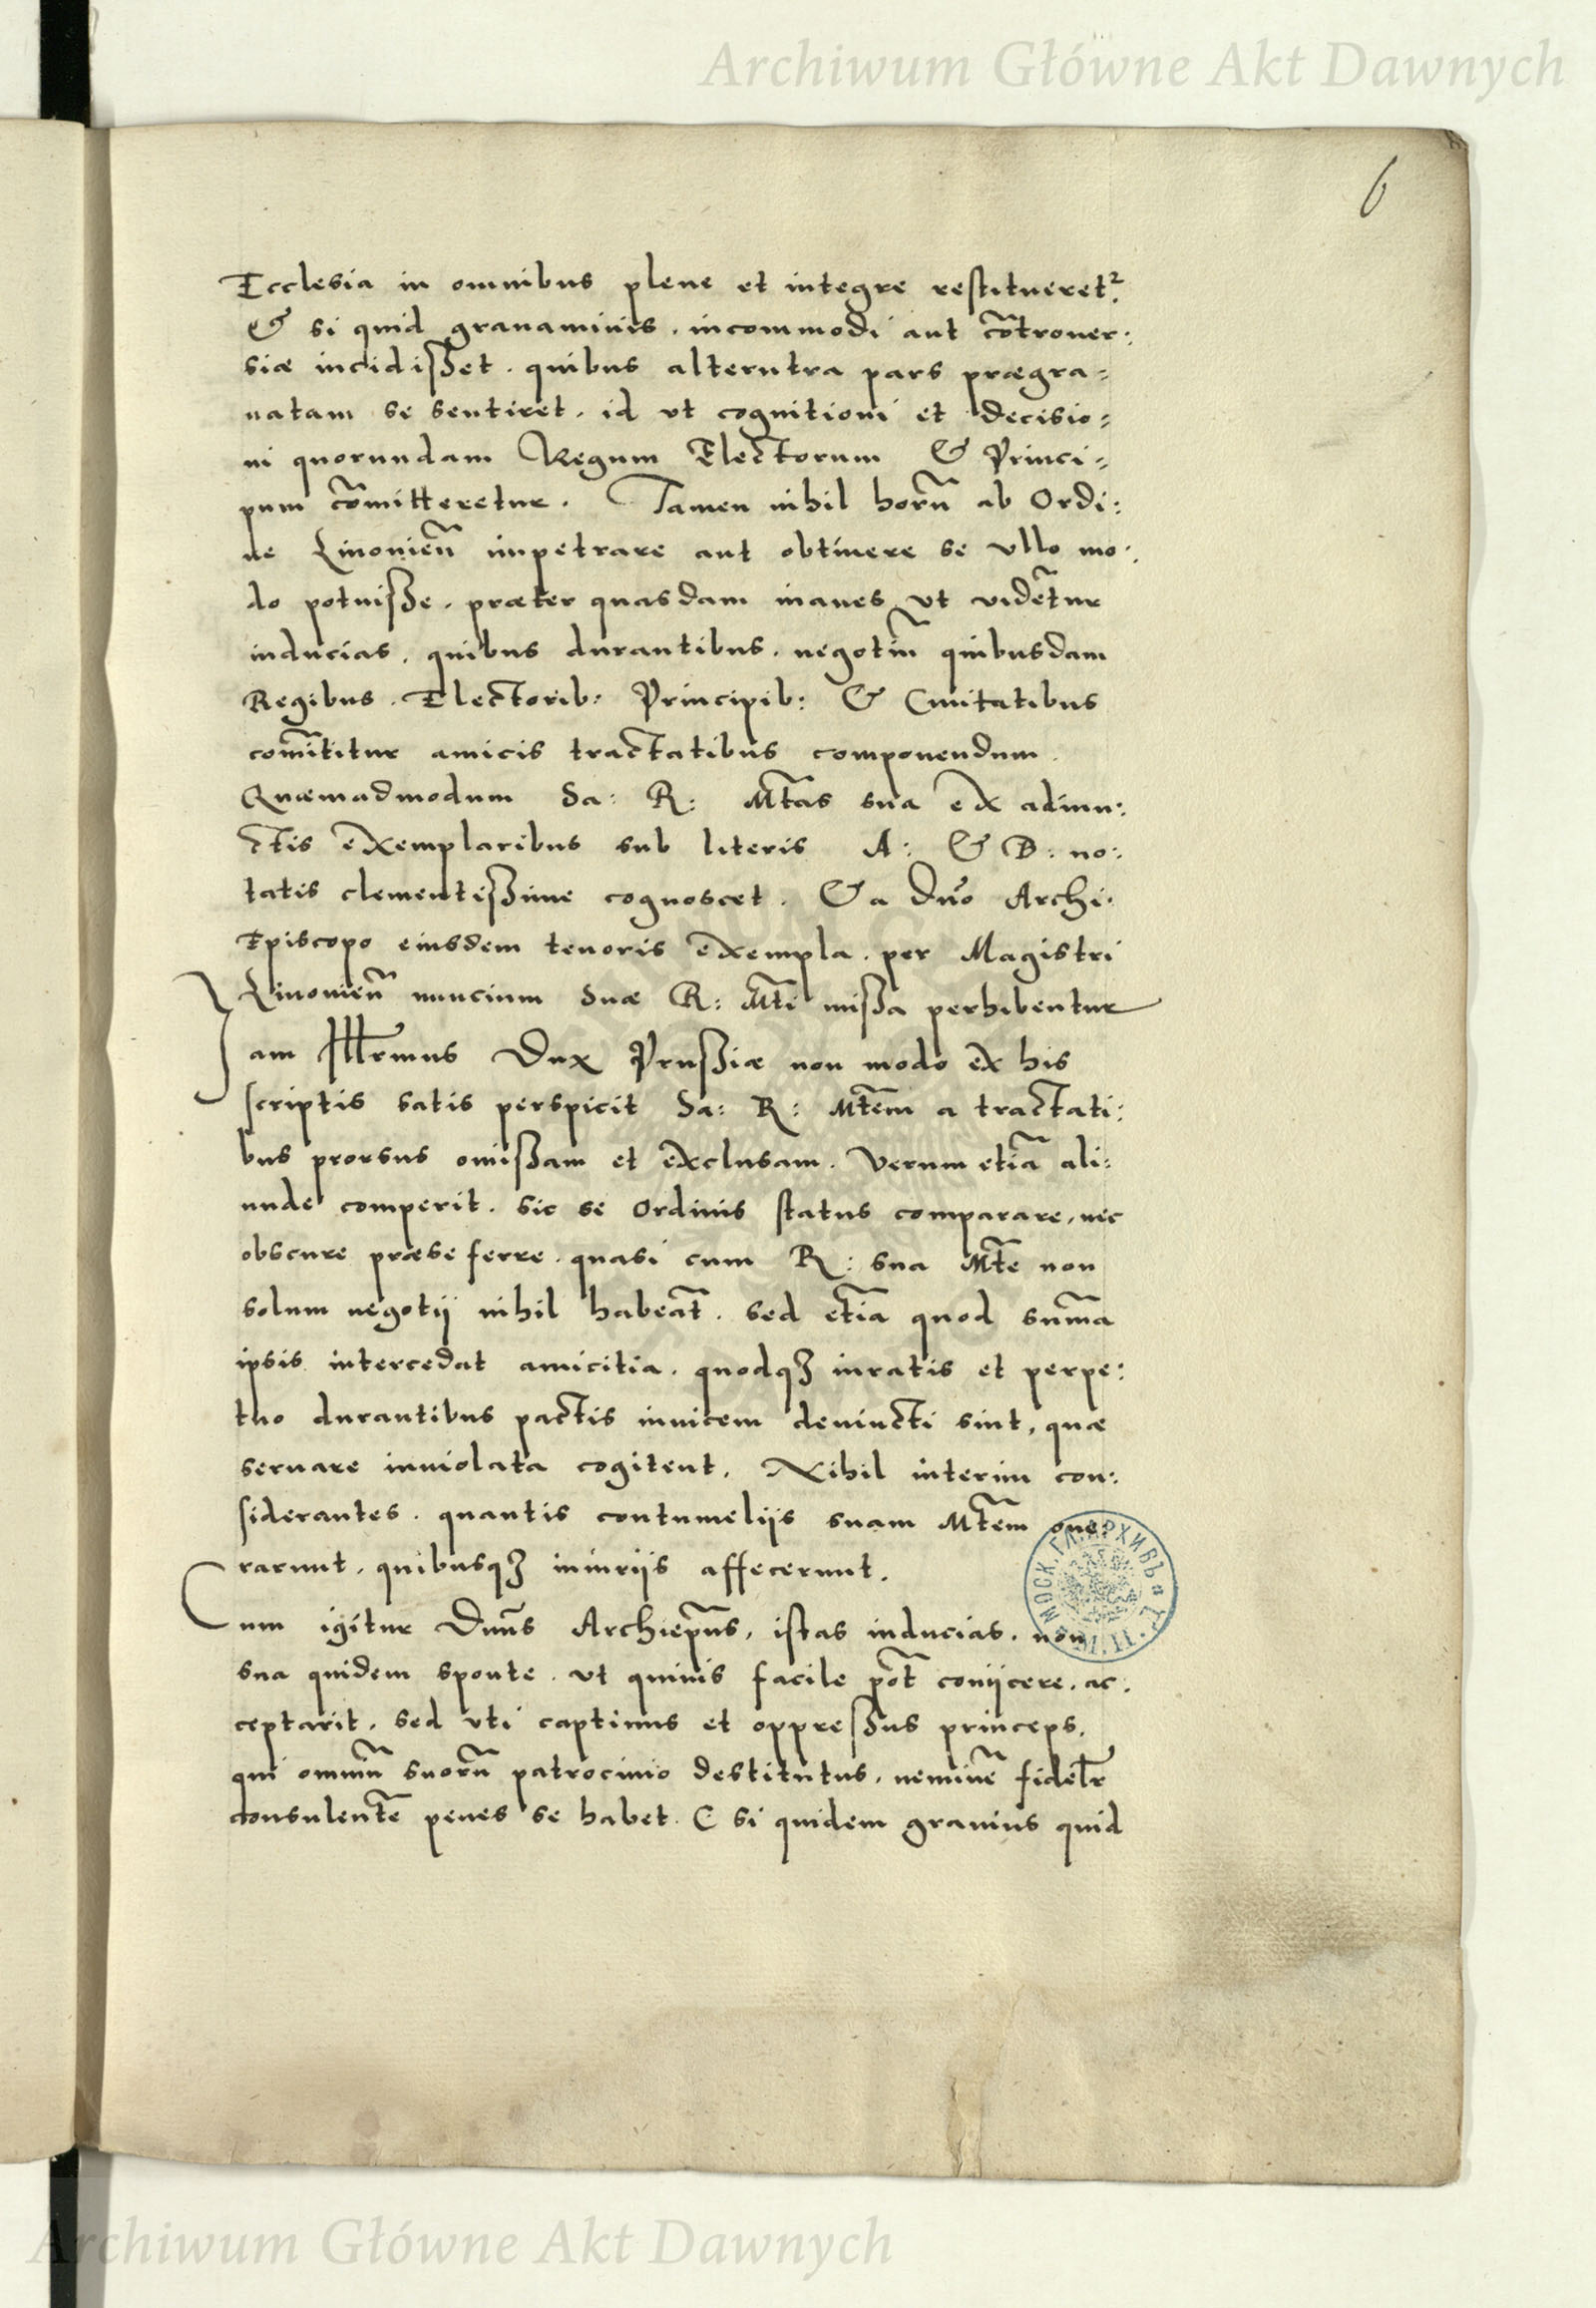 Archiwum Główne Akt Dawnych
6
Ecclesia in omnibus plene et integre restitueret².
& si quid grauaminis . incommodi aut cōtrouer:
siæ incidisset . quibus alterutra pars prægra=
uatam se sentiret . id vt cognitioni et decisio=
ni quorundam Regum Electorum & Princi=
pum cōmitteretur . Tamen nihil horū ab Ordi:
ne Liuonien̄ impetrare aut obtinere se vllo mo:
do potuisse . præter quasdam inanes vt videt̄ur
inducias . quibus durantibus . negotiū quibusdam
Regibus . Electorib: Principib: & Ciuitatibus
com̄ititur amicis tractatibus componendum .
Quemadmodum Sa: R: Mt̄as sua ex adiun:
ctis exemplaribus sub literis A: & B: no:
tatis clementissime cognoscet . & a Dn̄o Archi:
Episcopo eiusdem tenoris exempla . per Magistri
Liuonien̄ nuncium Suæ R: Mt̄i missa perhibentur
Jam Illr̄mus Dux Prussiæ non modo ex his
scriptis satis perspicit Sa: R: Mt̄em a tractati:
bus prorsus omissam et exclusam . Verum etiā ali:
unde comperit . sic se Ordinis status comparare, nec
obscure præse ferre . quasi cum R: sua Mt̄e non
solum negotij nihil habeāt . sed et̄ia quod sum̄a
ipsis intercedat amicitia . quodqꝫ iuratis et perpe:
tuo durantibus pactis inuicem deuincti sint, quæ
seruare inuiolata cogitent . Nihil interim con:
siderantes . quantis contumelijs suam Mt̄em one:
rarunt . quibusqꝫ iniurijs affecerunt .
Cum igitur Dn̄us Archiep̄us, istas inducias . non
sua quidem sponte . vt quiuis facile pōt conijcere . ac:
ceptarit . sed vti captiuus et oppressus princeps,
qui omniū suorū patrocinio destitutus, neminē fidelr̄
consulentē penes se habet . & si quidem grauius quid
МОСК. ГЛ. АРХИВЪ
Archiwum Główne Akt Dawnych